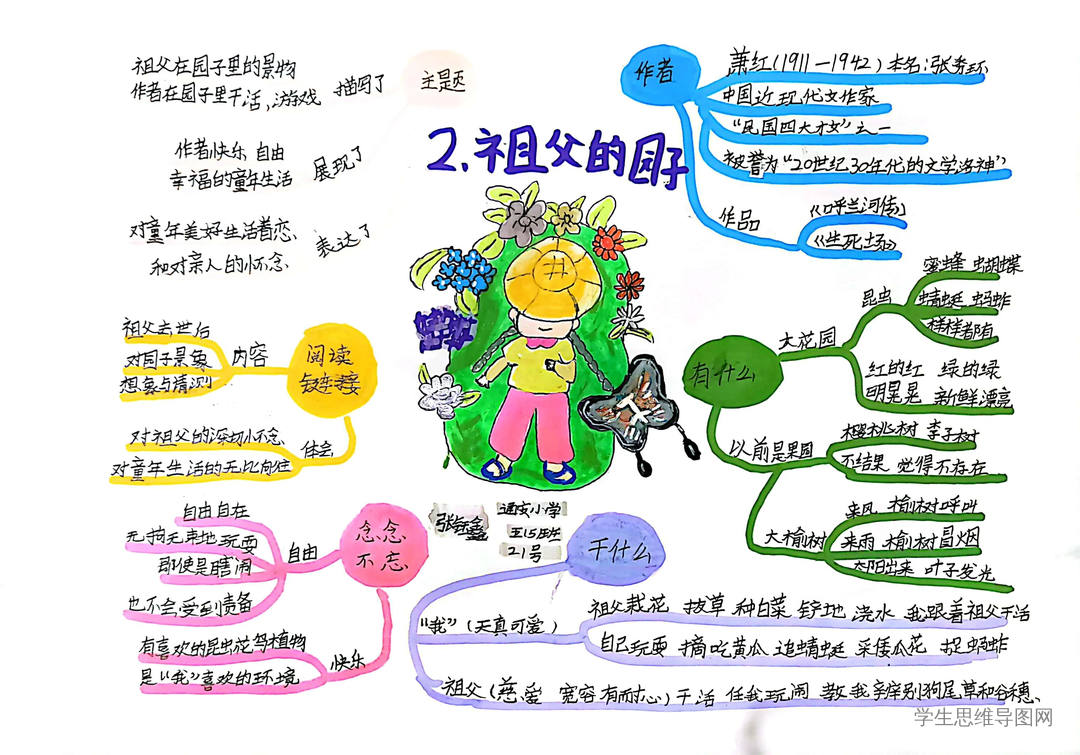 2.祖父的园子
主题
描写了
祖父在园子里的景物
作者在园子里干活,游戏
展现了
作者快乐 自由
幸福的童年生活
表达了
对童年美好生活眷恋、
和对亲人的怀念
作者
萧红(1911—1942)本名:张秀环
中国近现代女作家
“民国四大才女”之一
被誉为“20世纪30年代的文学洛神”
作品
《呼兰河传》
《生死场》
有什么
大花园
昆虫
蜜蜂 蝴蝶
蜻蜓 蚂蚱
样样都有
红的红 绿的绿
明晃晃 新鲜漂亮
以前是果园
樱桃树 李子树
不结果 觉得不存在
大榆树
来风 榆树呼叫
来雨 榆树冒烟
太阳出来 叶子发光
阅读
链接
内容
祖父去世后
对园子景象
想象与猜测
体会
对祖父的深切怀念
对童年生活的无比向往
念念
不忘
自由
自由自在
无拘无束地玩耍
即使是瞎闹
也不会受到责备
快乐
有喜欢的昆虫花鸟植物
是“我”喜欢的环境
通安小学
五15班
21号
干什么
“我”(天真可爱)
祖父栽花 拔草 种白菜 铲地 浇水 我跟着祖父干活
自己玩耍 摘吃黄瓜 追蜻蜓 采倭瓜花 捉蚂蚱
祖父(慈爱 宽容 有耐心)干活 任我玩闹 教我辨别狗尾草和谷穗、
学生思维导图网